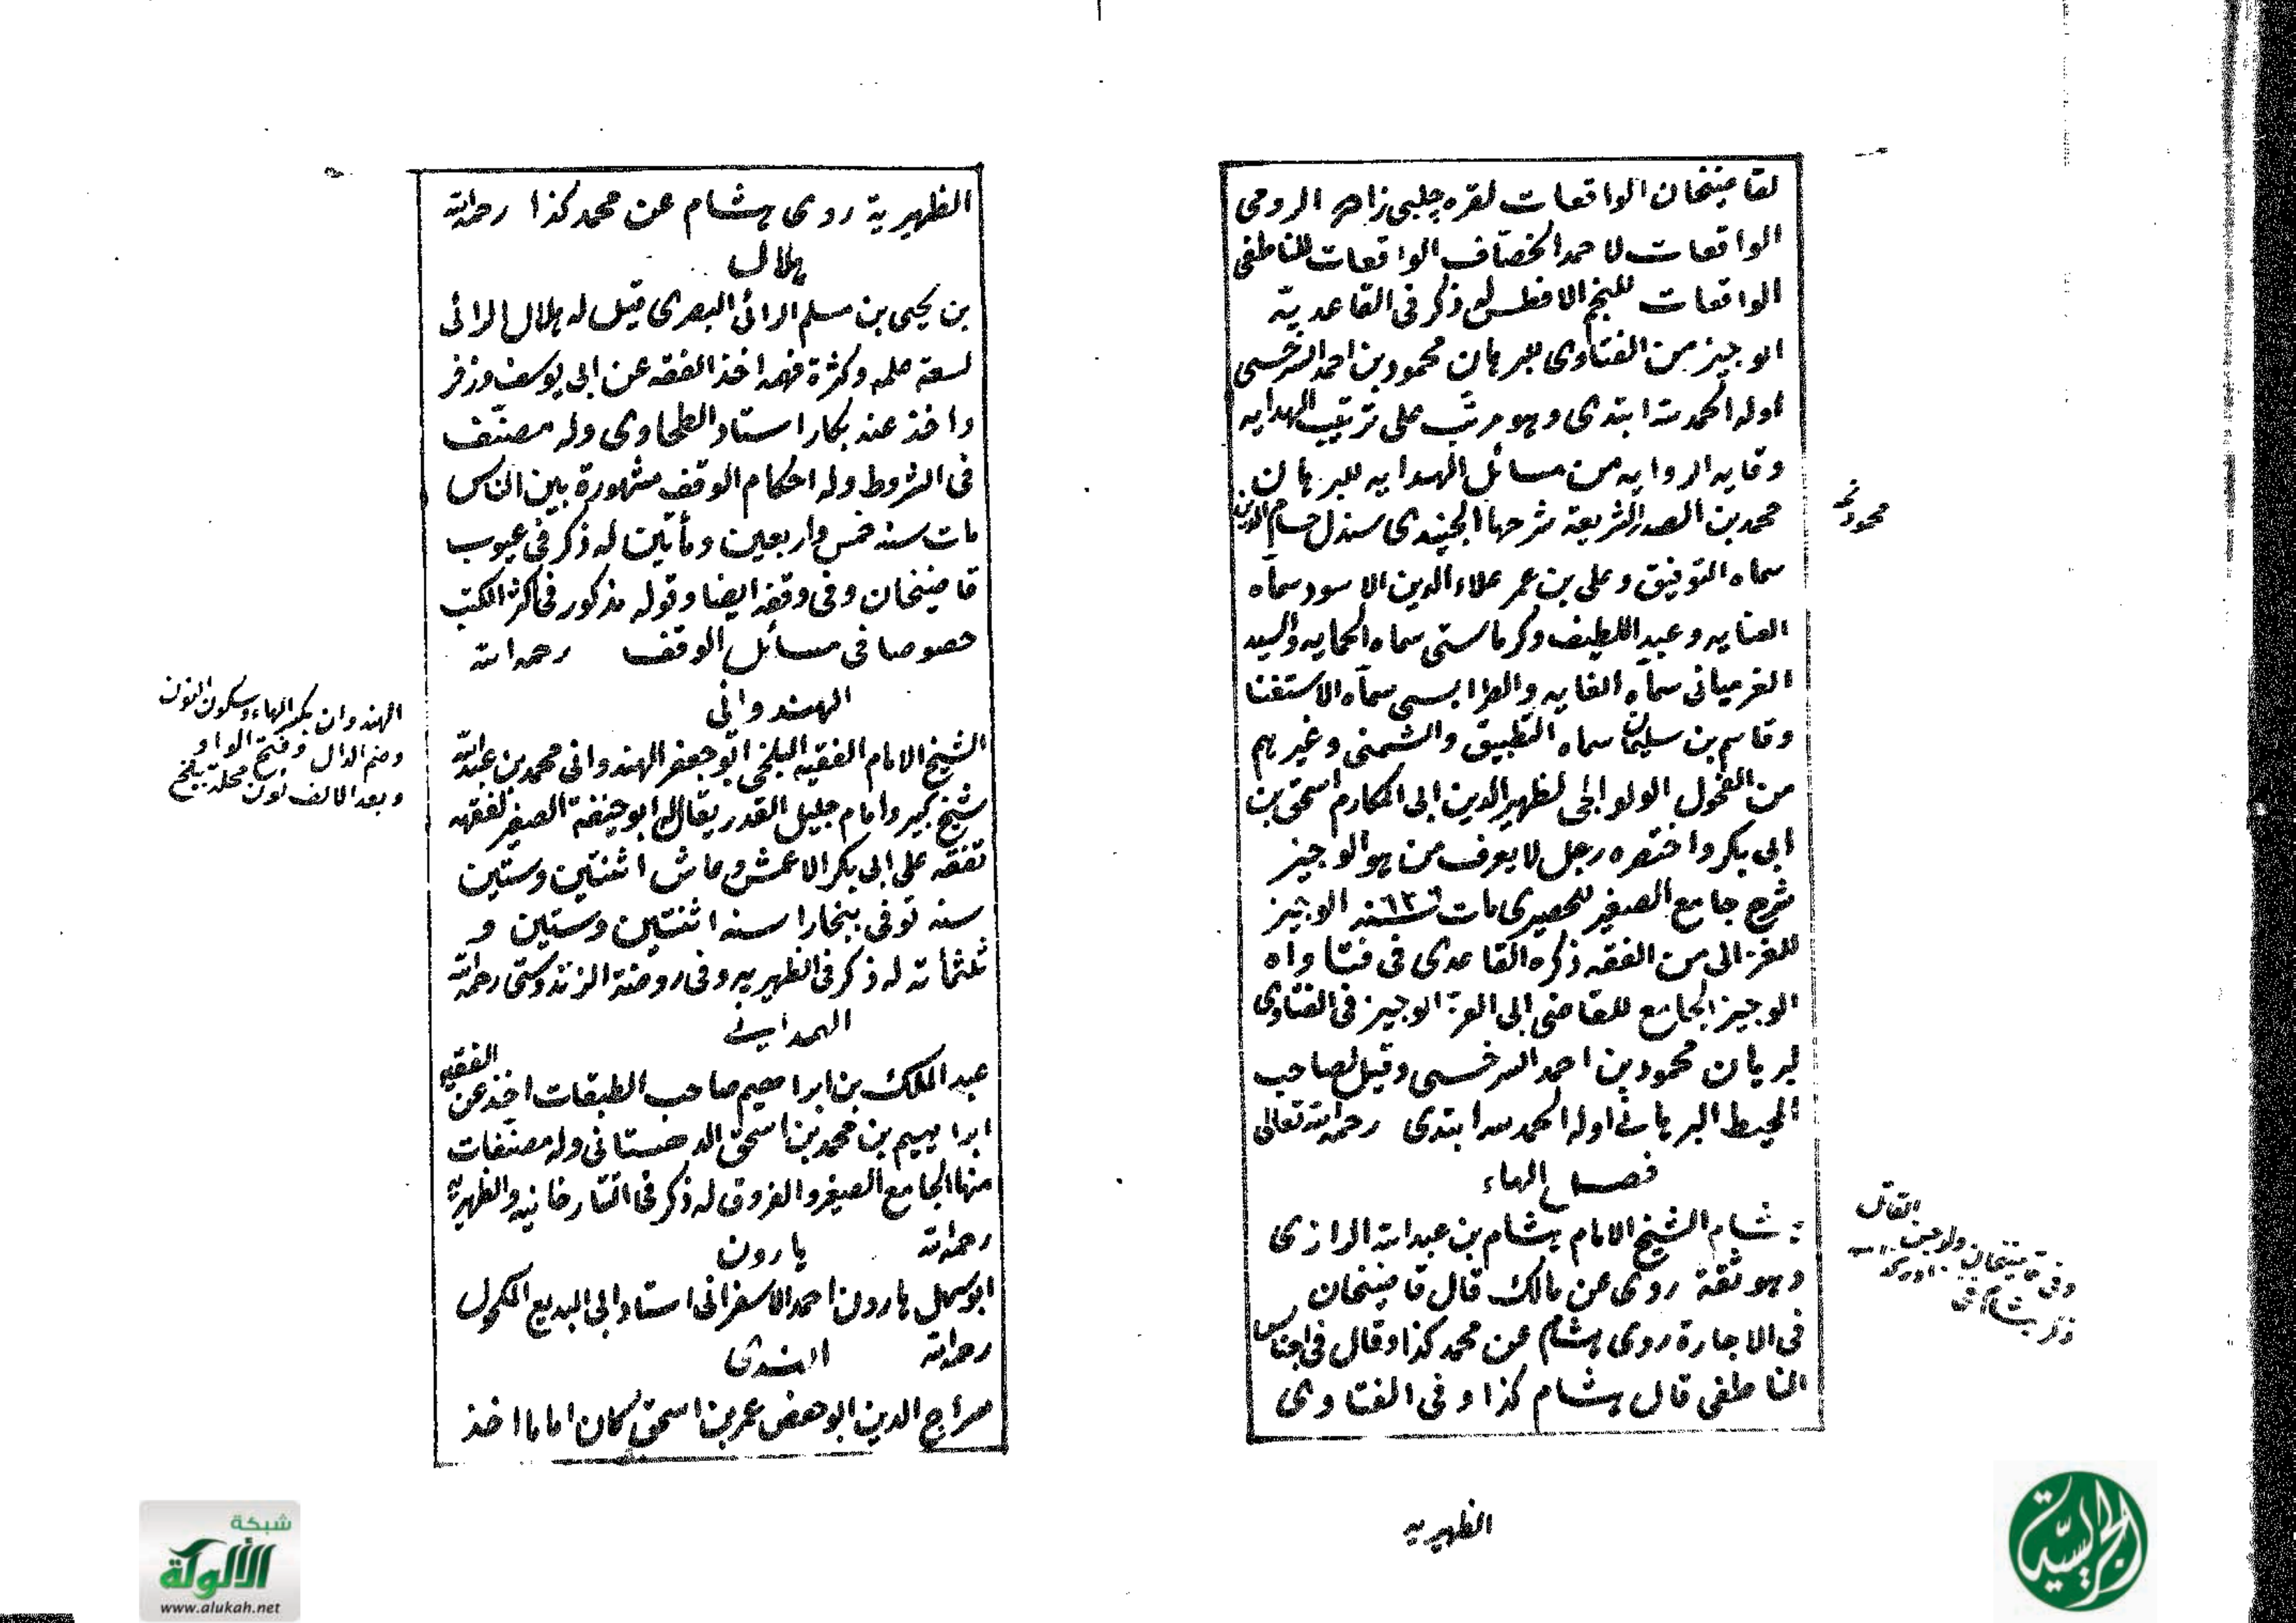 لقاضيخان الواقعات لقره چلبى زاهر الرومى
الواقعات لاحمد الخصاف الواقعات للناطفى
الواقعات للنجم الافطس له ذكر فى القاعدية
الوجيز من الفتاوى لبرهان محمود بن احمد السرخسى
اوله الحمد لله ابتدى وهو مرتب على ترتيب الهدايه
وقايه الروايه من مسائل الهدايه للبرهان
محمد بن الصدر الشريعة شرحها الجنيدى سندل حسام الدين
سماه التوفيق وعلى بن عمر علاء الدين الاسود سماه
العنايه وعبد اللطيف وكرماستى سماه الحمايه والسيد
الغرميانى سماه الغايه والطرابسى سماه الاستغنا
وقاسم بن سليمان سماه التطبيق والشمنى وغيرهم
من الفحول الولوالجى لظهير الدين ابى المكارم اسحق بن
ابى بكر واختصره رجل لا يعرف من هو الوجيز
شرح جامع الصغير للحصيرى مات سنة الوجيز
للغزالى من الفقه ذكره القاعدى فى فتاواه
الوجيز الجامع للقاضى ابى العز الوجيز فى الفتاوى
لبرهان محمود بن احمد السرخسى وقيل لصاحب
المحيط البرهانى اوله الحمد لله ابتدى رحمه الله تعالى
فصل الهاء
هشام الشيخ الامام هشام بن عبد الله الرازى
وهو ثقة روى عن مالك قال قاضيخان
فى الاجارة روى هشام عن محمد كذا وقال فى اجناس
الناطفى قال هشام كذا وفى الفتاوى
الظهريه
محمود نخ
الظهيرية روى هشام عن محمد كذا رحمه الله
هلال
بن يحيى بن مسلم الرائى البصرى قيل له هلال الرائى
لسعة علمه وكثرة فهمه اخذ الفقه عن ابى يوسف وزفر
واخذ عنه بكار استاد الطحاوى وله مصنف
فى الشروط وله احكام الوقف مشهورة بين الناس
مات سنة خمس واربعين ومأتين له ذكر فى عيوب
قاضيخان وفى وقفه ايضا وقوله مذكور فى اكثر الكتب
خصوصا فى مسائل الوقف رحمه الله
الهندوانى
الشيخ الامام الفقيه البلخى ابو جعفر الهندوانى محمد بن عبد الله
شيخ كبير وامام جليل القدر يقال له ابو حنيفة الصغير لفقهه
تفقه على ابى بكر الاعمش وعاش اثنتين وستين
سنه توفى ببخارا سنه اثنتين وستين و
ثلثمأته له ذكر فى الظهيريه وفى روضة الزندوستى رحمه الله
الهمدانى
عبد الملك بن ابراهيم صاحب الطبقات اخذ عن الفقيه
ابراهيم بن محمد بن اسحق الدهستانى وله مصنفات
منها الجامع الصغير والفروق له ذكر فى التتارخانيه والظهيريه
رحمه الله هارون
ابو سهل هارون بن احمد الاسفرانى استاد ابى البديع المكحول
رحمه الله الهندى
سراج الدين ابو حفص عمر بن اسحق كان اماما اخذ
الهندوان بكسر الهاء وسكون النون
وضم الدال وفتح الواو
وبعد الالف نون محلة ببلخ
شبكة
الألوكة
www.alukah.net